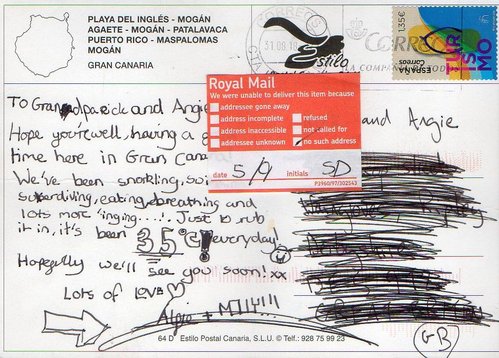 PLAYA DEL INGLÉS - MOGÁN
AGAETE - MOGÁN - PATALAVACA
PUERTO RICO - MASPALOMAS
MOGÁN
GRAN CANARIA
CORREOS
Estilo
1,35€
ESPAÑA
Correos
TURISMO
Royal Mail
We were unable to deliver this item because
addressee gone away
address incomplete
refused
address inaccessible
not called for
addressee unknown
no such address
date 5/9 initials SD
P3960/97/302543
To Grandpa Rick and Angie
Hope you're well, having a
time here in Gran Cana
We've been snorkling,
eating, breathing and
lots more 'inging'.....! Just to rub
it in, it's been 35°C! everyday!
Hopefully we'll see you soon! xx
Lots of love
+ MILLY!!!!
and Angie
GB
64 D Estilo Postal Canaria, S.L.U. © Telf.: 928 75 99 23